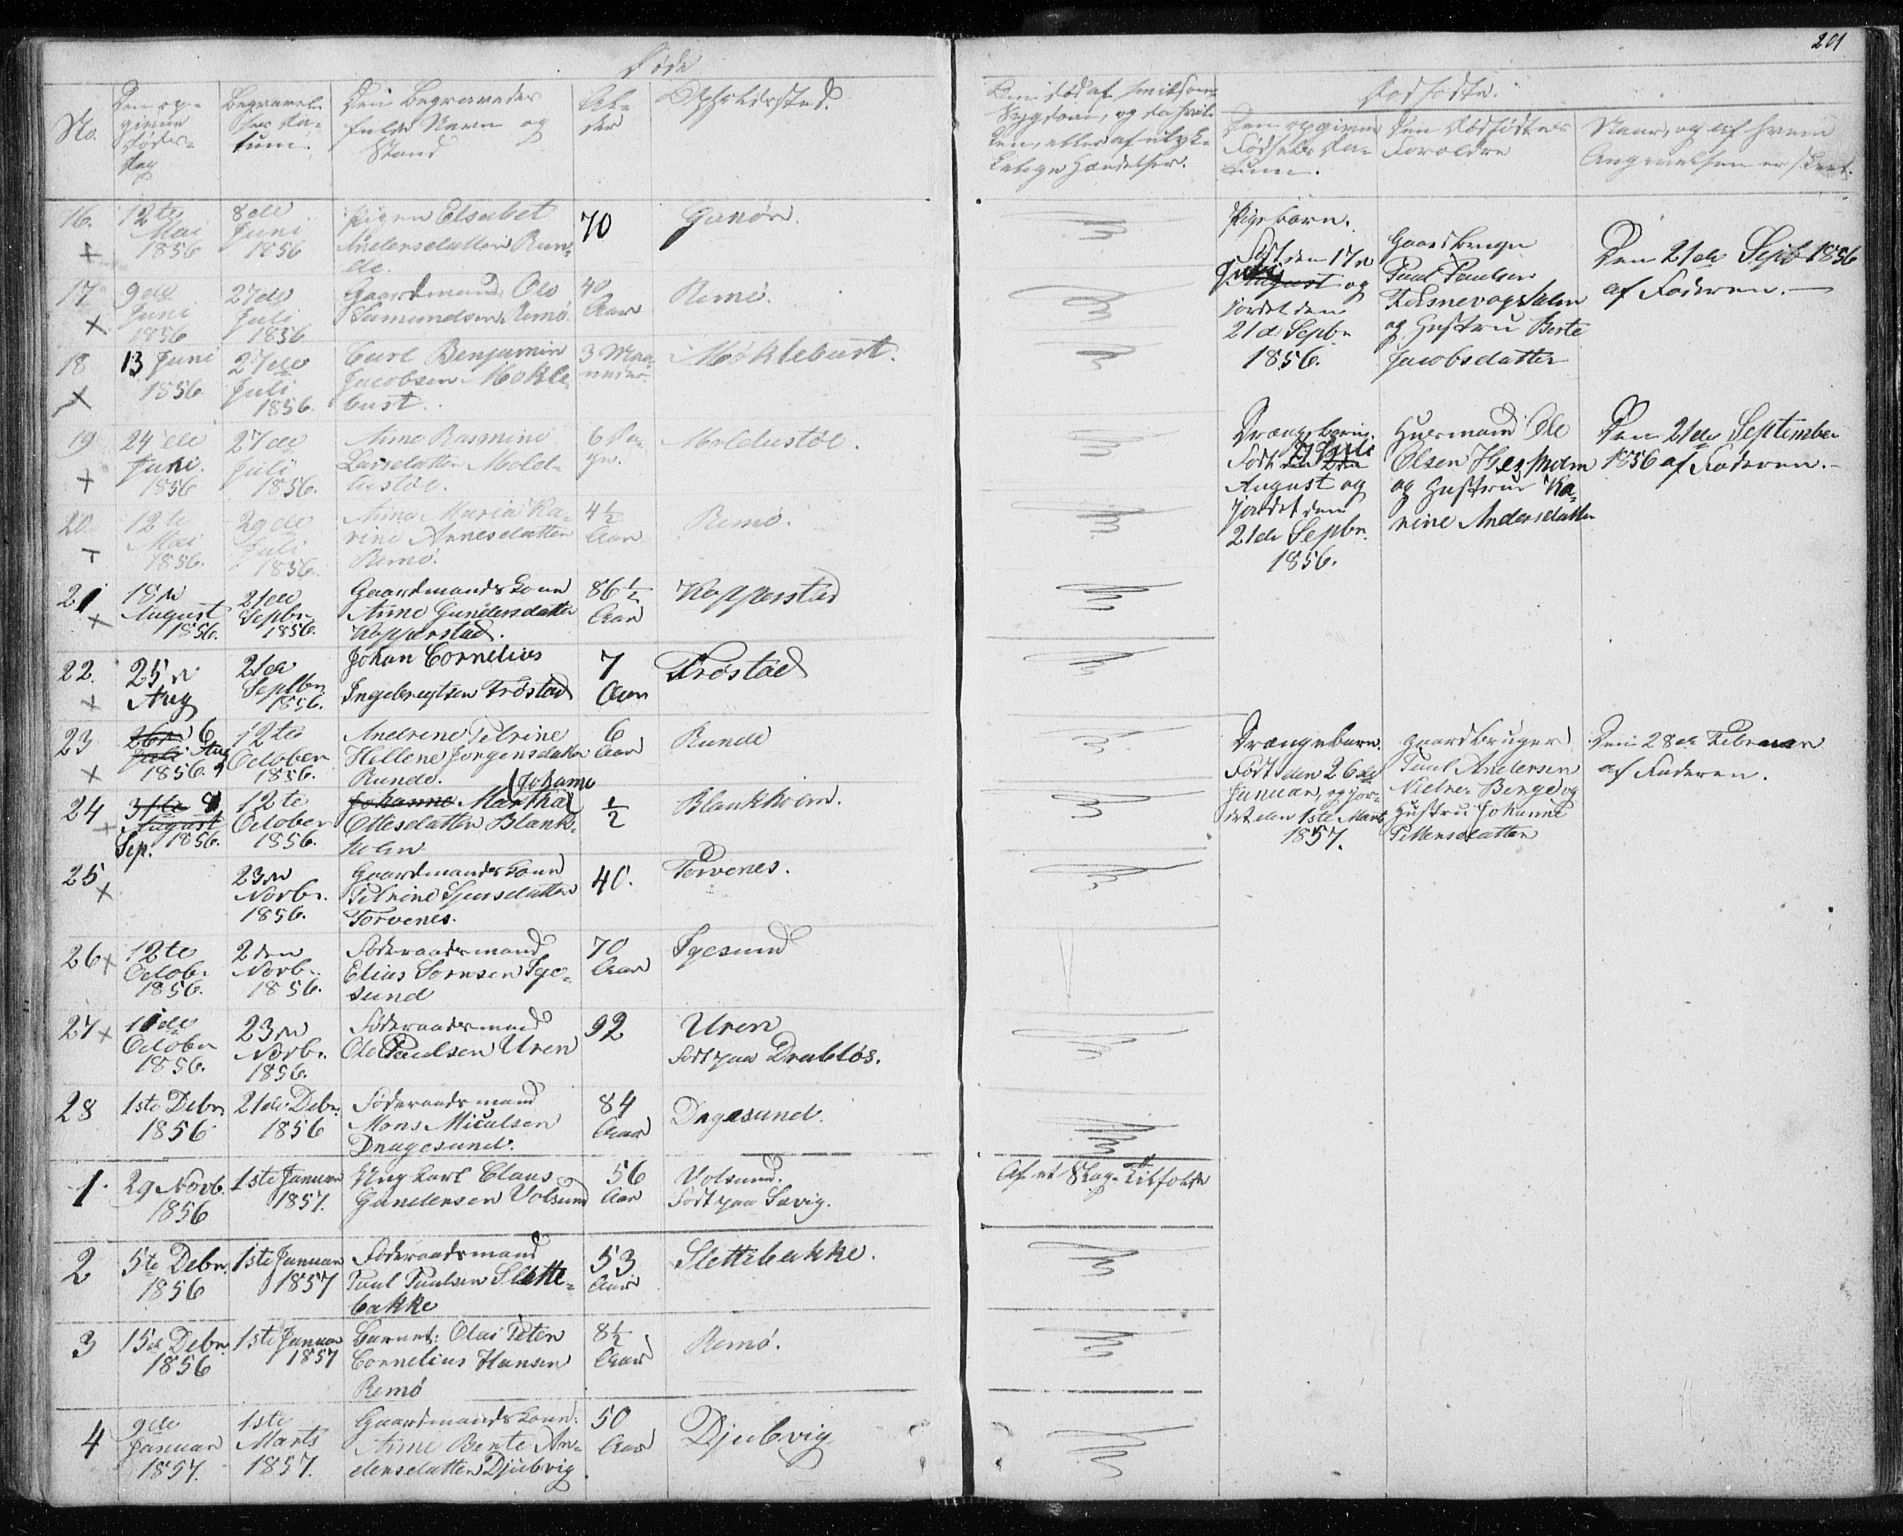 201
Døde
No.
Den op-
givne
Døds-
dag
Begravel-
ses Da-
tum.
Den Begravedes
fulde Navn og
Stand
Al-
der
Opholdssted.
16.
12te
Mai
1856
8de
Juni
1856
Pigen Elsabet
Andersdatter Run-
de.
70
17
9de
Juni
1856
27de
Juli
1856
Gaardmand Ole
Samundsen Remø.
40
Aar
Remø.
18
13 Juni
1856
27de
Juli
1856.
Carl Benjamin
Jacobsen Mokle
bust.
3 Maa
neder.
Møklebust.
19
24de
Juni.
1856
27de
Juli
1856.
Anne Rasmine
Larsdatter Mold-
tustøl.
6 Da-
ge.
Moldtustøl.
20.
12te
Mai
1856.
29de
Juli
1856.
Anne Maria Ka-
rine Arnesdatter
Remø.
4½
Aar
Remø.
21
18de
August
1856.
21de
Septbr.
1856.
Gaardmandskone
Anne Gundersdatter
Kopperstad.
86½
Aar
Kopperstad
22.
25de
Aug
21de
Septbr.
1856.
Johan Cornelius
Ingebregtsen Frøstad
7
Aar
Frøstad
23
26de 6
Juli Aug
1856.
12te
October
1856.
Andrine Petrine
Hellene Jørgensdatter
Runde.
6
Aar
Runde
24
31te 8
August
Sep. 1856.
12te
October
1856.
Johanne Martha Johanne
Ottesdatter Blank-
holm
½
Blankholm.
25
23de
Novbr.
1856.
Gaardmandskone
Petrine Sjursdatter
Torvenes.
40.
Torvenes.
26
12te
Octobr
1856.
2den
Novbr.
1856.
Føderaadsmand
Elias Sørnsen Ige-
sund
70
Aar
Igesund
27
11de
October
1856.
23de
Novbr.
1856.
Føderaadsmand
Ole Paulsen Uren
92
Uren
Født paa Drabløs.
28
1ste Debr
1856
21de Debr.
1856
Føderaadsmand
Mons Miculsen
Dragesund.
84
Aar
Dragesund.
1.
29 Novb.
1856
1ste Januar
1857.
Ungkarl Claus
Gundersen Volsund
56
Aar
Volsund.
Født paa Savig.
2
5te Debr.
1856
1ste Januar
1857
Føderaadsmand
Paul Paulsen Slette-
bakke
53
Aar
Slettebakke.
3
15de Debr.
1856
1ste Januar
1857
Barnet: Olai Peter
Cornelius Hansen
Remø
8½
Aar
Remø.
4
9de
Januar
1857.
1ste
Marts
1857.
Gaardmandskone.
Anne Berte An-
dersdatter Djubvig
50
Aar
Djubvig
Om død af smitsom
Sygdom, og da hvil-
ken, eller af ulyk-
kelige Hændelser.
Af et Slag-Tilfælde
Dødfødte.
Den opgivne
Fødsels Da-
tum.
Den Dødfødtes
Forældre
Naar, og af hvem
Angivelsen er skeet.
Pigebarn.
Født den 17de
August Juli og
jordet den
21de Septbr
1856.
Gaardbruger
Paul Paulsen
og Hustru Berte
Jacobsdatter
Den 21de Sept 1856
af Faderen.
Drængebarn.
Født den 2den
August og
jordet den
21de Septbr.
1856.
Huusmand Ole
Olsen
og Hustru Ka-
rine Andersdatter
Den 21de September
1856 af Faderen.
Drængebarn.
Født den 26de
Januar, og jor-
det den 1ste Marts
1857.
Gaardbruger
Paul Andersen
og
Hustru Johanne
Pettersdatter
Den 28de Februar
af Faderen.